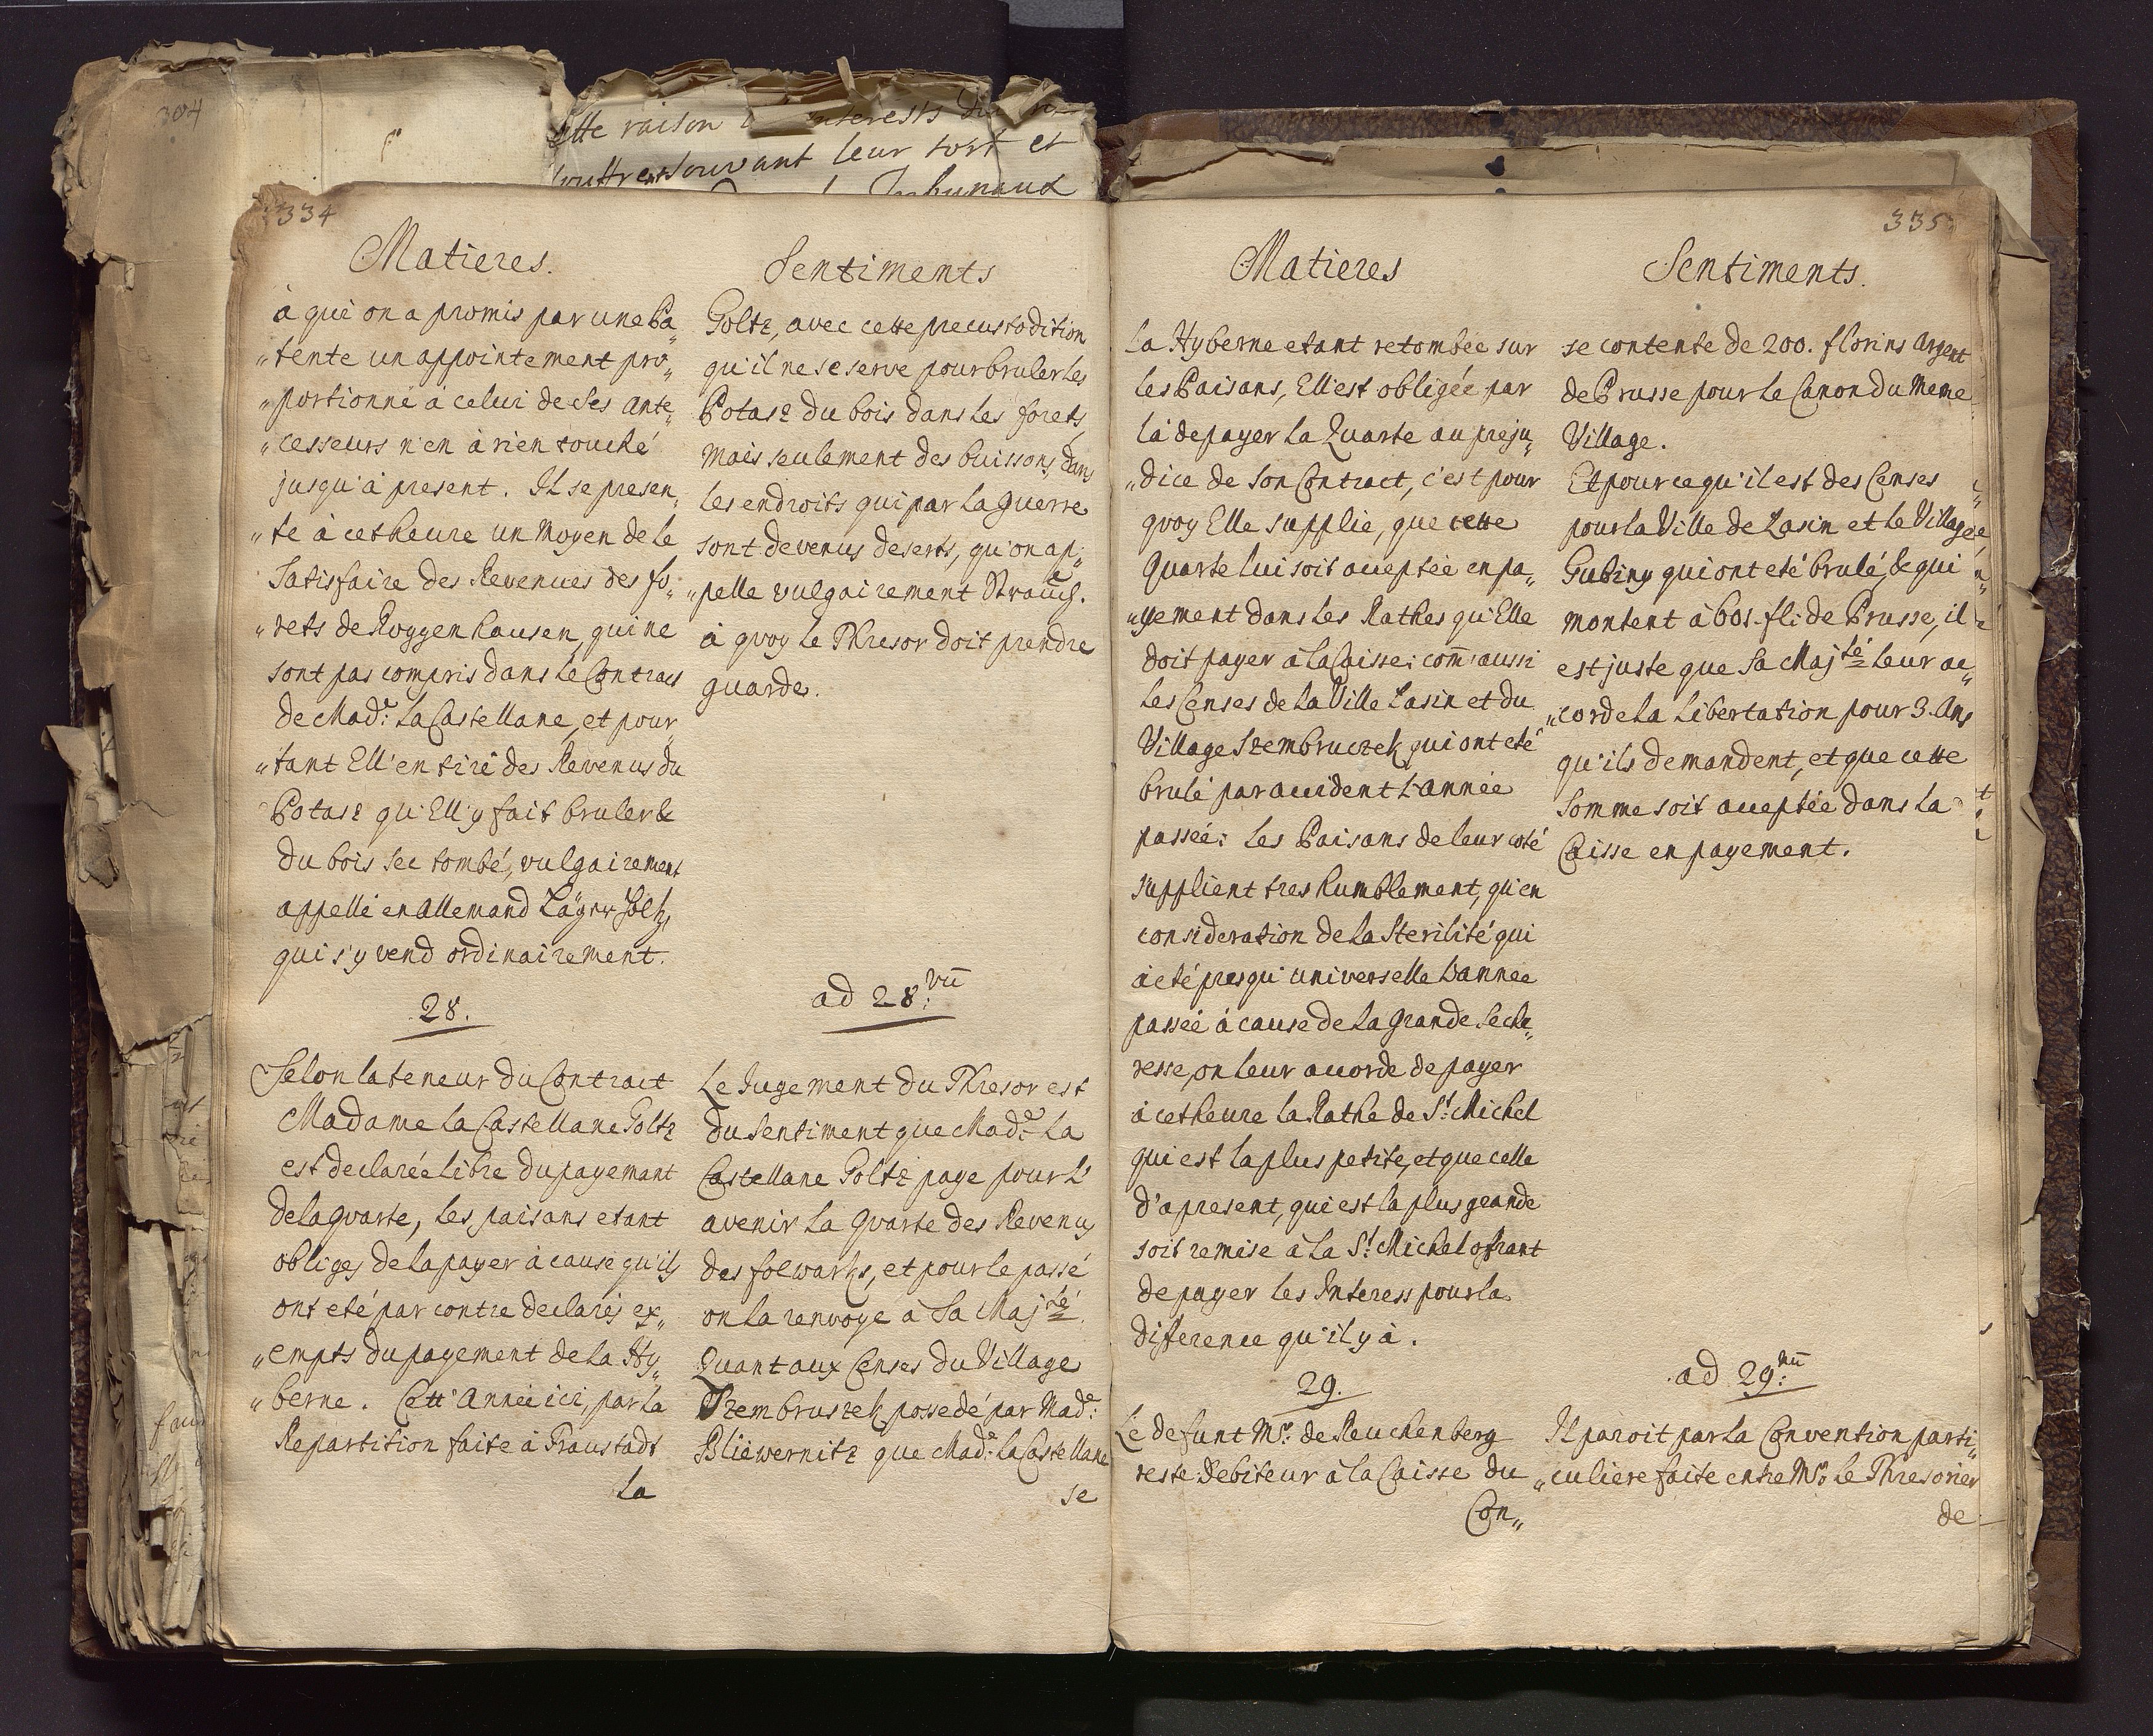 304
cette raison interests du
souffrent souvant leur tort et
334
Matieres.
à qui on a promis par une Pa„
„tente un appointement pro„
„portionné a celui de ses ante„
„cesseurs n'en à rien touché
jusqu'à present. Il se presen„
„te à cetheure un moyen de le
Satisfaire des Revenues des fo„
„rets de Roggenhausen, qui ne
sont pas compris dans le Contract
de Mad.e la Castellane, et pour„
„tant Ell'en tire des Revenus du
Potasz qu'Ell'y fait bruler &
du bois sec tombé, vulgairement
appellé en allemand Läger Holtz,
qui s'y vend ordinairement.
28.
Selon la teneur du Contract
Madame la Castellane Goltz
est declarée libre du payemant
de la quarte, les paisans etant
obliges de la payer à cause qu'ils
ont eté par contre declarés ex„
„empts du payement de la Hy„
„berne. Cett'Année ici, par la
Repartition faite à Fraustadt
la
Sentiments
Goltz, avec cette precustodition
qu'il ne se serve pour bruler les
Potasz du bois dans les forets,
mais seulement des buissons, dans
les endroits qui par la guerre
sont devenus deserts, qu'on ap„
„pelle vulgairement Strauch.
à quoy le Thresor doit prendre
guarde.
ad 28.vū
Le Jugement du Thresor est
du Sentiment que Mad.e la
Castellane Goltz paye pour l'
avenir la quarte des Revenus
des folwarks, et pour le passé
on la renvoye a Sa Maj.té
Quant aux Censes du Village
Szembruszek possedé par Mad.e
Bliewernitz que Mad.e la Castellane
se
335
Matieres
la Hyberne etant retombée sur
les Paisans, Ell'est obligée par
là de payer la Quarte au preju„
„dice de son Contract, c'est pour
quoy Elle supplie, que cette
Quarte lui soit acceptée en pa„
„yement dans les Rathes qu'Elle
doit payer à la Caisse; com̄'aussi
les Censes de la Ville Lasin et du
Village Szembruczek qui ont eté
brulé par accident l'année
passée: les Paisans de leur coté
supplient tres humblement, qu'en
consideration de la Sterilité qui
à eté presqu'universelle l'année
passée à cause de la grande seche„
resse, on leur accorde de payer
à cetheure la Rathe de St: Michel
qui est la plus petite, et que celle
d'apresent, qui est la plus grande
soit remise à la St: Michel offrant
de payer les Interess pour la
difference qu'il y à.
29.
Le defunt Mr: de Reuchenberg
reste Debiteur à la Caisse du
Con„
Sentiments.
se contente de 200. florins argent
de Prusse pour le Canon du meme
Village.
Et pour ce qu'il est des Censes
pour la Ville de Lasin et le Village
Gubiny qui ont eté brulé, & qui
montent à 601. fl: de Prusse, il
est juste que Sa Maj.té leur ac„
„corde la libertation pour 3. Ans
qu'ils demandent, et que cette
somme soit acceptée dans la
Caisse en payement.
ad 29.nū
Il paroit par la Convention parti„
„culiere faite entre Mr: le Thresorier
de